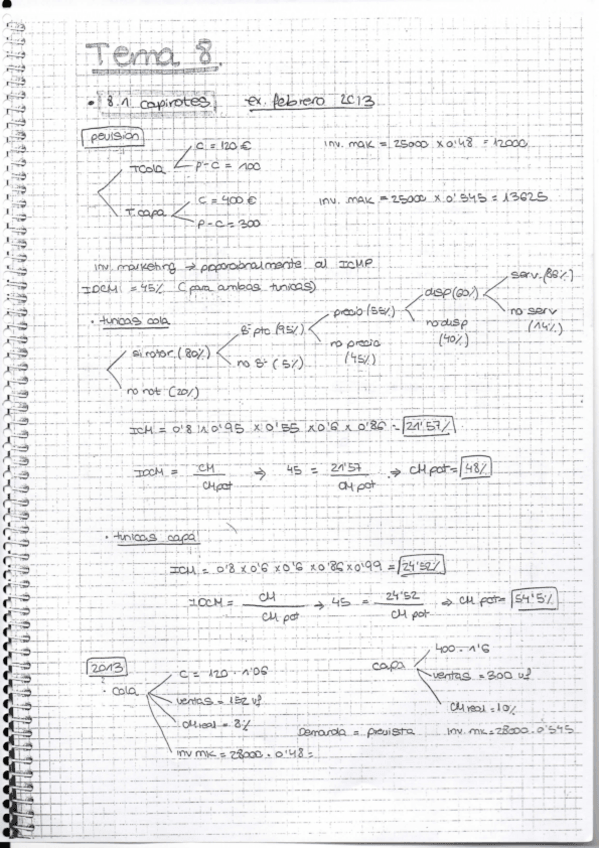 Tema 8.
• 8.1 capirotes, ex. febrero 2013
previsión
T.Cola
C = 120 €
P-C = 100
inv. mak = 25000 x 0'48 = 12000
T.capa
C = 400 €
P-C = 300
inv. mak = 25000 x 0'545 = 13625
inv. marketing → proporcionalmente al ICMP
IDCM = 45% (para ambas tunicas)
• tunicas cola
si notor. (80%)
no not (20%)
Bº pto (95%)
no Bº (5%)
precio (55%)
no precio (45%)
disp (60%)
no disp (40%)
serv. (86%)
no serv (14%)
ICM = 0'8 x 0'95 x 0'55 x 0'6 x 0'86 = 21'57%
IDCM = CM / CM pot → 45 = 21'57 / CM pot → CM pot = 48%
• tunicas capa
ICM = 0'8 x 0'6 x 0'6 x 0'86 x 0'99 = 24'52%
IDCM = CM / CM pot → 45 = 24'52 / CM pot → CM pot = 54'5%
2013
• cola
C = 120 · 1'06
ventas = 152 uf
CM real = 8%
inv mk = 28000 · 0'48 =
capa
400 · 1'6
ventas = 300 uf
CM real = 10%
Demanda = prevista
inv. mk = 28000 · 0'545